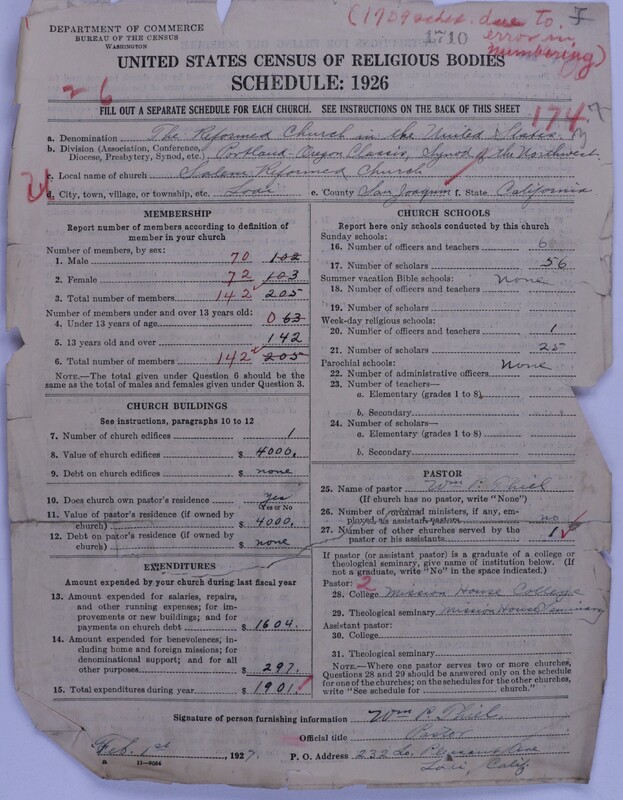 DEPARTMENT OF COMMERCE
BUREAU OF THE CENSUS
WASHINGTON
(1709 sched. due to
error in
numbering)
1710
UNITED STATES CENSUS OF RELIGIOUS BODIES
SCHEDULE: 1926
26
FILL OUT A SEPARATE SCHEDULE FOR EACH CHURCH. SEE INSTRUCTIONS ON THE BACK OF THIS SHEET
174
a. Denomination The Reformed Church in the United States
b. Division (Association, Conference, Diocese, Presbytery, Synod, etc.) Portland-Oregon Classis, Synod of the Northwest
c. Local name of church Salem Reformed Church
d. City, town, village, or township, etc. Lodi e. County San Joaquin f. State California
MEMBERSHIP
Report number of members according to definition of member in your church
Number of members, by sex:
1. Male 70 102
2. Female 72 103
3. Total number of members 142 205
Number of members under and over 13 years old:
4. Under 13 years of age 0 63
5. 13 years old and over 142
6. Total number of members 142 205
NOTE.—The total given under Question 6 should be the same as the total of males and females given under Question 3.
CHURCH BUILDINGS
See instructions, paragraphs 10 to 12
7. Number of church edifices 1
8. Value of church edifices $ 4000.
9. Debt on church edifices $ none
10. Does church own pastor's residence Yes
Yes or No
11. Value of pastor's residence (if owned by church) $ 4000.
12. Debt on pastor's residence (if owned by church) $ none
EXPENDITURES
Amount expended by your church during last fiscal year
13. Amount expended for salaries, repairs, and other running expenses; for improvements or new buildings; and for payments on church debt $ 1604.
14. Amount expended for benevolences, including home and foreign missions; for denominational support; and for all other purposes $ 297.
15. Total expenditures during year $ 1901.
CHURCH SCHOOLS
Report here only schools conducted by this church
Sunday schools:
16. Number of officers and teachers 6
17. Number of scholars 56
Summer vacation Bible schools: None
18. Number of officers and teachers
19. Number of scholars
Week-day religious schools:
20. Number of officers and teachers 1
21. Number of scholars 25
Parochial schools: None
22. Number of administrative officers
23. Number of teachers—
a. Elementary (grades 1 to 8)
b. Secondary
24. Number of scholars—
a. Elementary (grades 1 to 8)
b. Secondary
PASTOR
25. Name of pastor Wm P. Thiel
(If church has no pastor, write "None")
26. Number of ordained ministers, if any, employed as assistant pastors no
27. Number of other churches served by the pastor or his assistants 1
If pastor (or assistant pastor) is a graduate of a college or theological seminary, give name of institution below. (If not a graduate, write "No" in the space indicated.)
Pastor: 2
28. College Mission House College
29. Theological seminary Mission House Seminary
Assistant pastor:
30. College
31. Theological seminary
NOTE.—Where one pastor serves two or more churches, Questions 28 and 29 should be answered only on the schedule for one of the churches; on the schedules for the other churches, write "See schedule for church."
Signature of person furnishing information Wm P. Thiel
Official title Pastor
Feb. 1st, 1927. P. O. Address 232 So. Pleasant Ave
Lodi, Calif.
11—9064